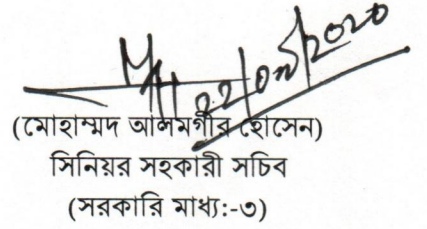 (মোহাম্মদ আলমগীর হোসেন)
সিনিয়র সহকারী সচিব
(সরকারি মাধ্য:-৩)